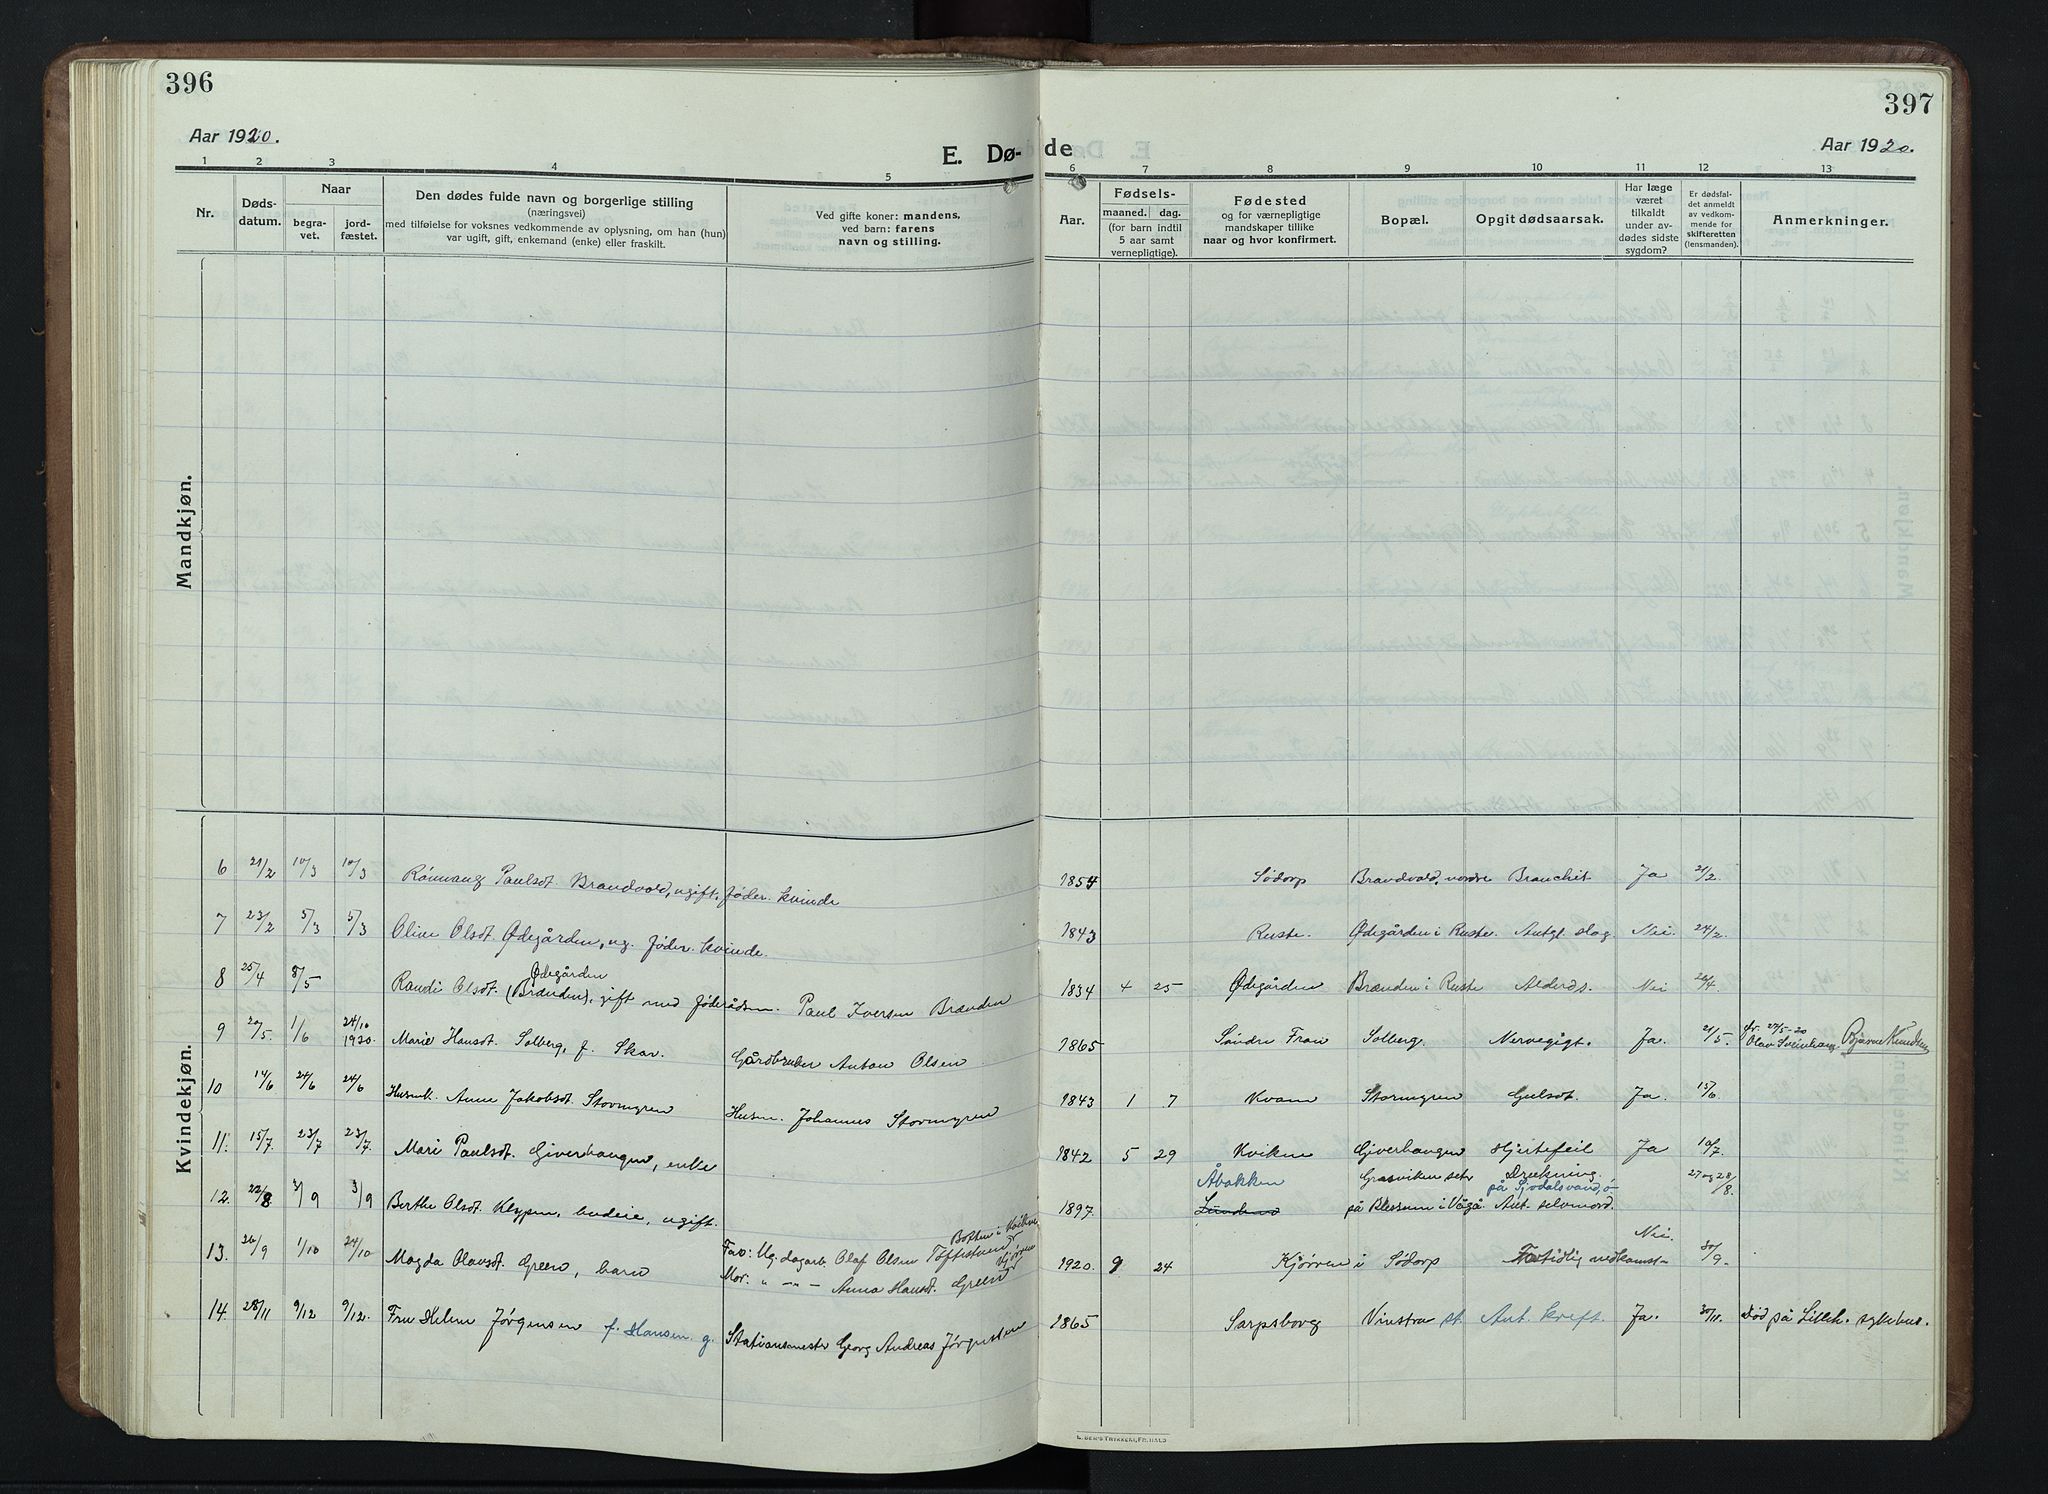 396
397
Aar 1920.
E. Dø-
de
Aar 1920.
1 2 3 4 5 6 7 8 9 10 11 12 13
Nr.
Døds-
datum.
Naar
begra-
vet.
jord-
fæstet.
Den dødes fulde navn og borgerlige stilling
(næringsvei)
med tilføielse for voksnes vedkommende av oplysning, om han (hun)
var ugift, gift, enkemand (enke) eller fraskilt.
Ved gifte koner: mandens,
ved barn: farens
navn og stilling.
Aar.
Fødsels-
maaned. dag.
(for barn indtil
5 aar samt
vernepligtige).
Fødested
og for værnepligtige
mandskaper tillike
naar og hvor konfirmert.
Bopæl.
Opgit dødsaarsak.
Har læge
været
tilkaldt
under av-
dødes sidste
sygdom?
Er dødsfal-
det anmeldt
av vedkom-
mende for
skifteretten
(lensmanden).
Anmerkninger.
Mandkjøn.
Kvindekjøn.
6 21/2 10/3 10/3 Rønnaug Paulsdt. Brandvold, ugift, føder. kvinde 1854 Sødorp Brandvold, nordre Bronchit Ja 21/2.
7 23/2 5/3 5/3 Oline Olsdt. Ødegården, ug. føder. kvinde. 1843 Ruste. Ødegården i Ruste. Antgl. slag. Nei. 24/2.
Ødegården
8 25/4 8/5 Randi Olsdt. (Brænden), gift med føderådsm. Paul Iversen Brænden 1834 4 25 Ødegården Brænden i Ruste Alderds. Nei 26/4.
9 20/5. 1/6 24/10 1920. Marie Hansdt. Solberg, f. Skar. Gårdbruker Anton Olsen 1865 Søndre Fron Solberg. Nervegigt. Ja. 21/5. Fr. 27/5-20 Olav Sveinhaug. Bjarne Knudsen
10 14/6 24/6 24/6 Husmk. Anne Jakobsdt. Stormyren Husm. Johannes Stormyren 1843 1 7 Kvam Stormyren Gulsot. Ja. 15/6.
11. 15/7. 23/7 23/7. Mari Paulsdt. Giverhaugen, enke 1842 5 29 Kvikne Giverhaugen Hjertefeil Ja 16/7.
12. 22/8 3/9 3/9 Berthe Olsdt. Klypen, budeie, ugift. 1897. Åbakken Grasviken seter på Blessum i Vågå. Drukning på Sjodalsvand, Ant. selvmord. 27 og 28/8.
13. 26/9 1/10 24/10 Magda Olavsdt. Green, barn Far: Ug. dagarb. Olaf Olsen Toftestuen, Botten i Kvikne
Mor: " - " - Anna Hansdt. Green 1920. 9 24 Kjørren i Sødorp For tidlig nedkomst Nei. 30/9.
14. 28/11 9/12 9/12. Fru Helene Jørgensen f. Hansen. g. Stationsmester Georg Andreas Jørgensen 1865 Sarpsborg Vinstra st. Ant. kreft. Ja. 30/11. Død på Lilleh. sykehus.